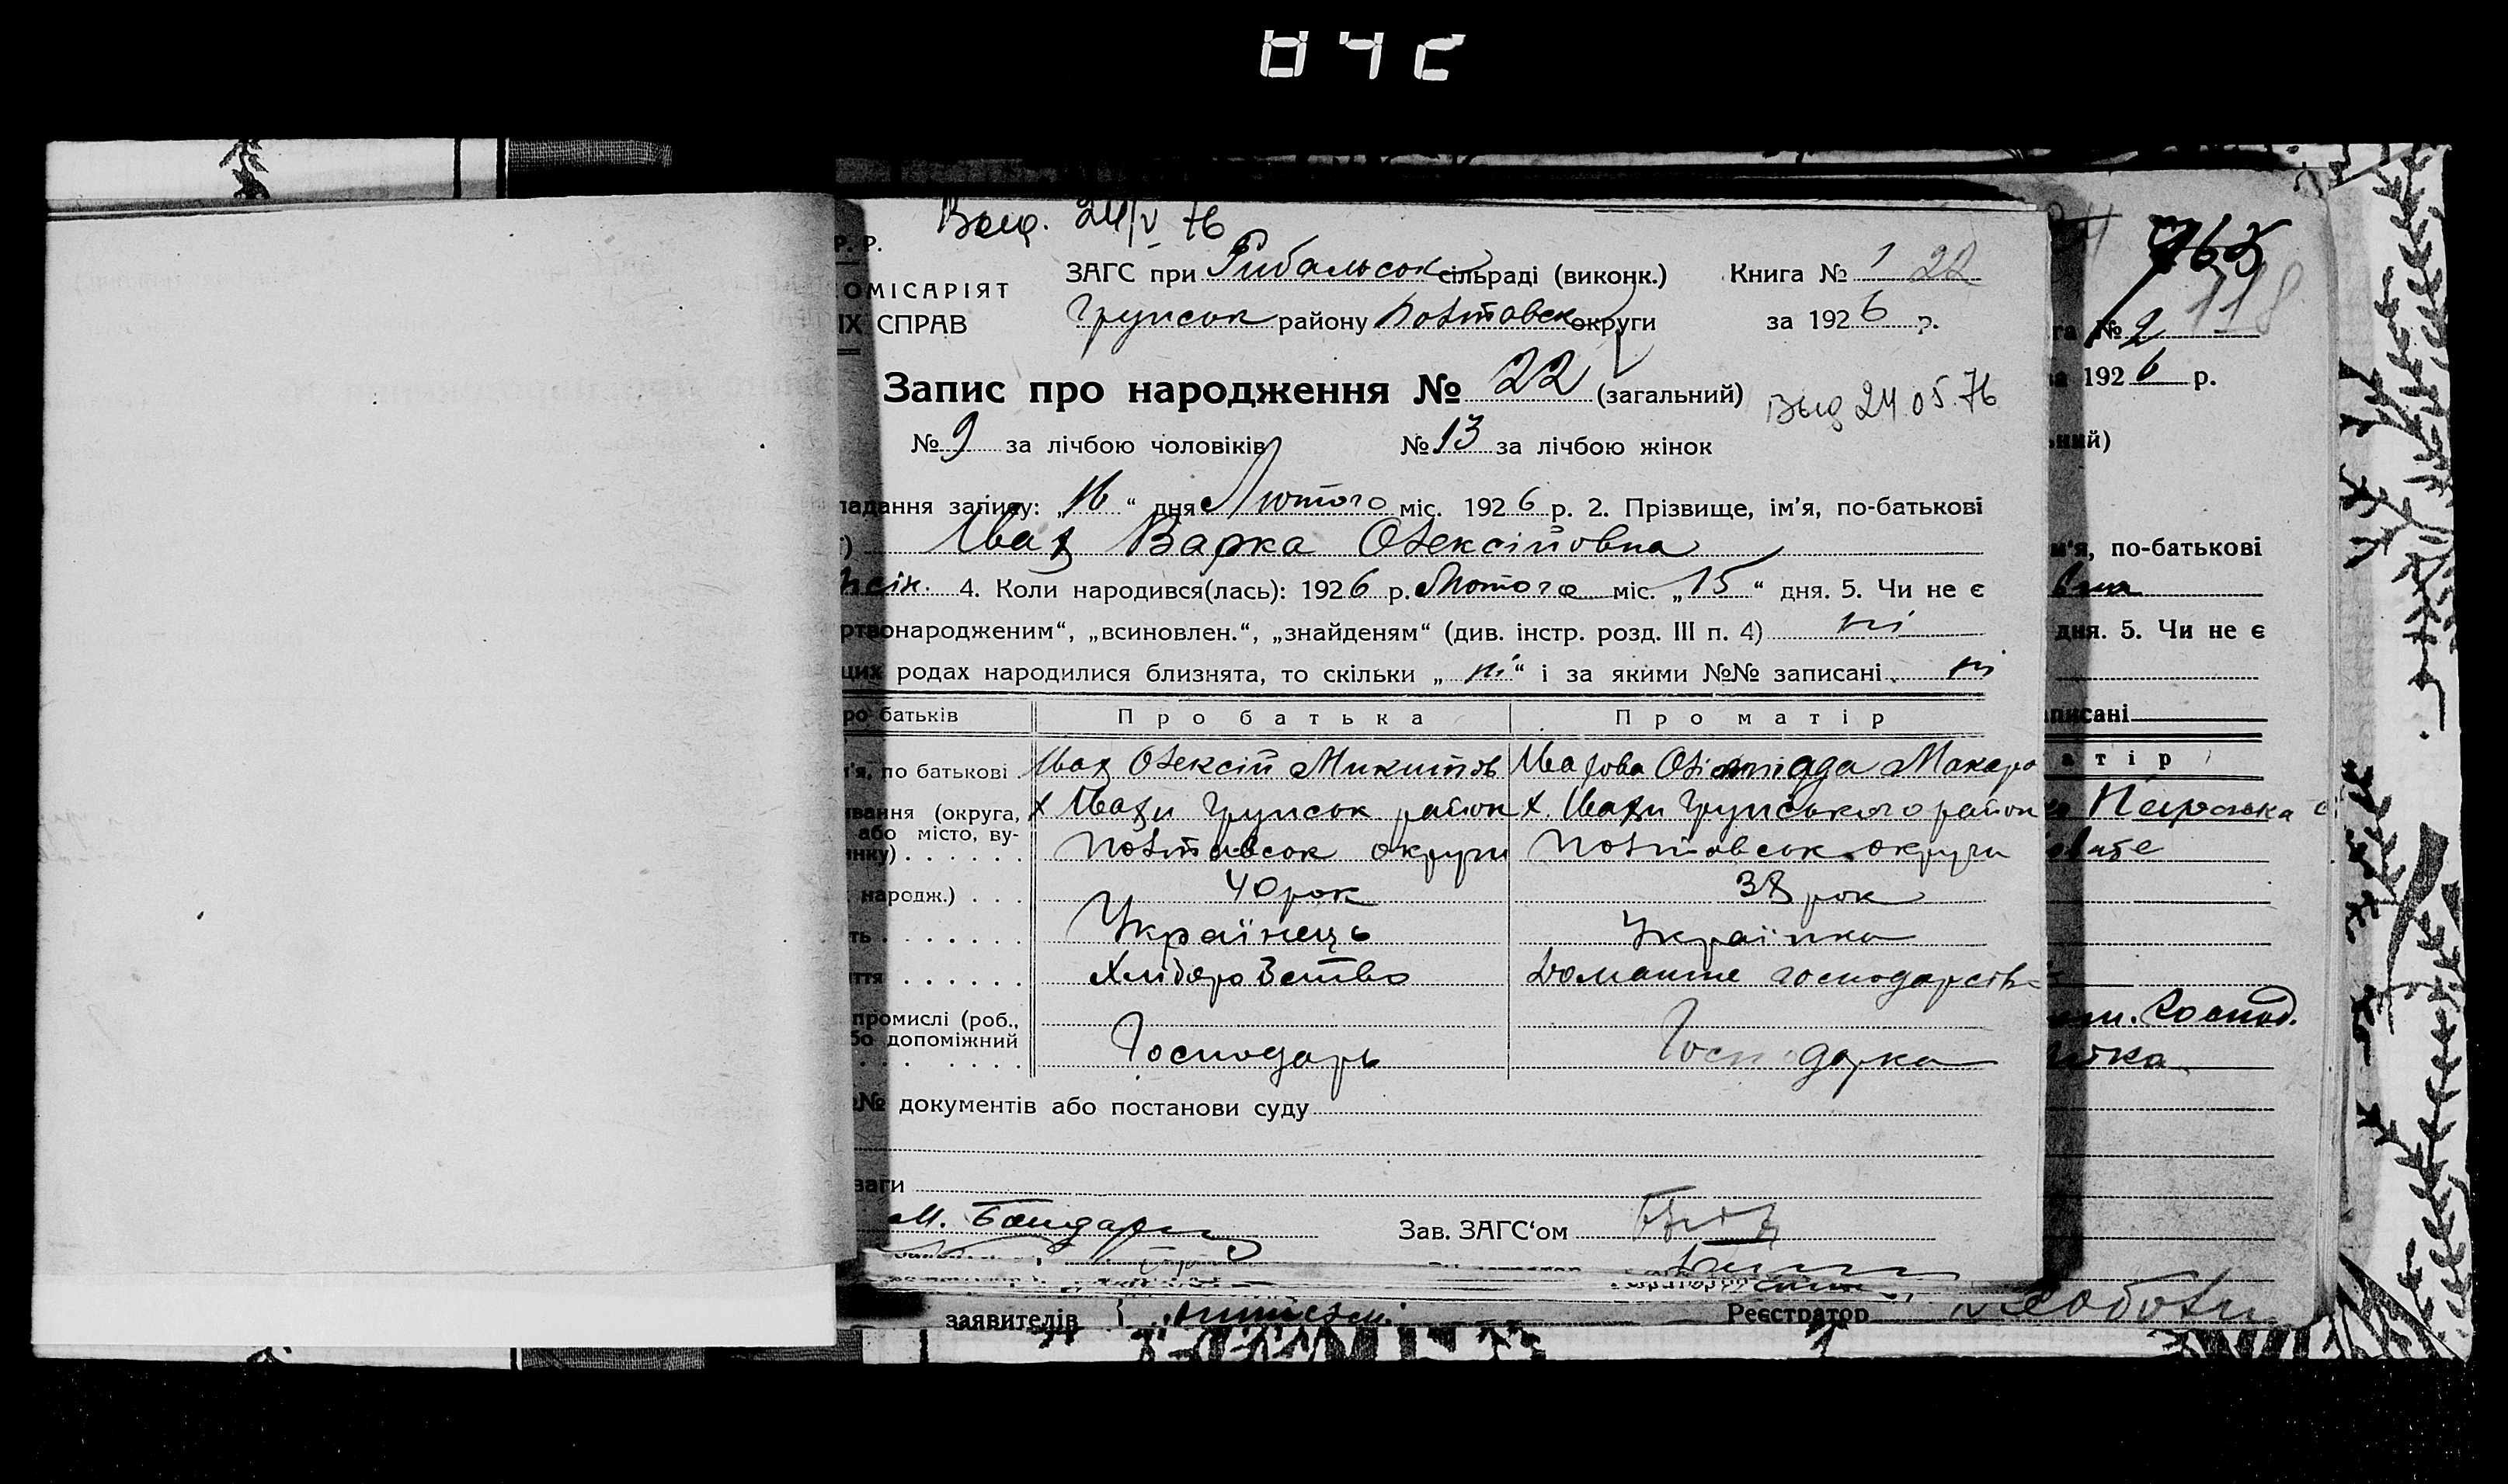 Выд. 24/V 76
Р. Р.
ОМІСАРІЯТ
ІХ СПРАВ
ЗАГС при Рибальськ сільраді (виконк.) Книга № 1 22
Грунськ району Полтавськ округи за 1926 р.
Запис про народження № 22 (загальний)
Выд 24 05.76
№ 9 за лічбою чоловіків № 13 за лічбою жінок
ладання запису: „16“ дня Лютого міс. 1926 р. 2. Прізвище, ім'я, по-батькові
) Іваҳ Варка Олексійовна
жін. 4. Коли народився(лась): 1926 р. Лютого міс. „15“ дня. 5. Чи не є
ртвонародженим“, „всиновлен.“, „знайденям“ (див. інстр. розд. III п. 4) ні
цих родах народилися близнята, то скільки „ні“ і за якими №№ записані ні
ро батьків Про батька Про матір
м'я, по батькові Олексій Микитов Макаро
вання (округа, х Грунськ район х. Грунського район
або місто, ву-
инку) Полтавськ округи Полтавськ округи
народж.) 40 рок 38 рок
ть Українець Українка
ття Хліборобство Домашнє господарств
промислі (роб.,
бо допоміжний
Господарь Господарка
№№ документів або постанови суду
ваги
М. Бондар Зав. ЗАГС'ом
заявителів Реєстратор
765
118
га № 2
за 1926 р.
ьний)
м'я, по-батькові
вна
дня. 5. Чи не є
аписані
атір
Господ.